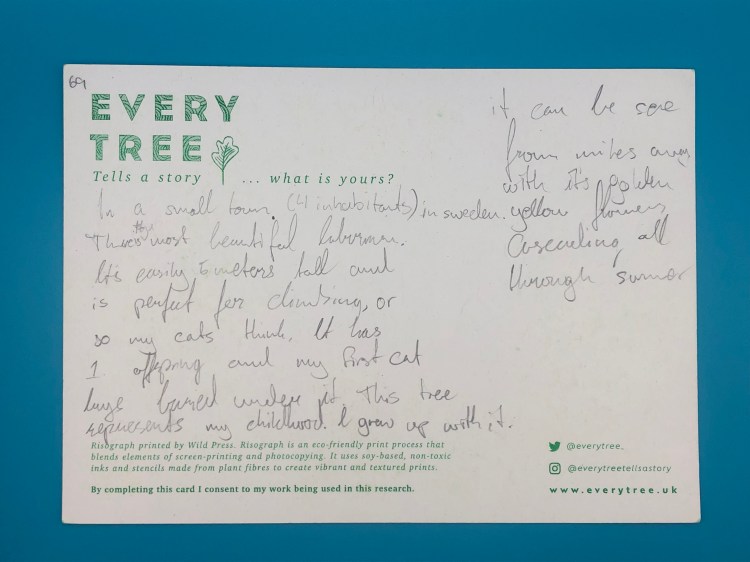 69
EVERY
TREE
Tells a story ... what is yours?
In a small town. (4 inhabitants) in sweden.
There's the most beautiful laburnum.
It's easily 5 meters tall and
is perfect for climbing, or
so my cats think. It has
1 offspring and my first cat
lays buried under it. This tree
represents my childhood. I grew up with it.
it can be seee
from miles away
with it's golden
yellow flowers
Cascading all
through sumor
Risograph printed by Wild Press. Risograph is an eco-friendly print process that
blends elements of screen-printing and photocopying. It uses soy-based, non-toxic
inks and stencils made from plant fibres to create vibrant and textured prints.
By completing this card I consent to my work being used in this research.
@everytree_
@everytreetellsastory
www.everytree.uk